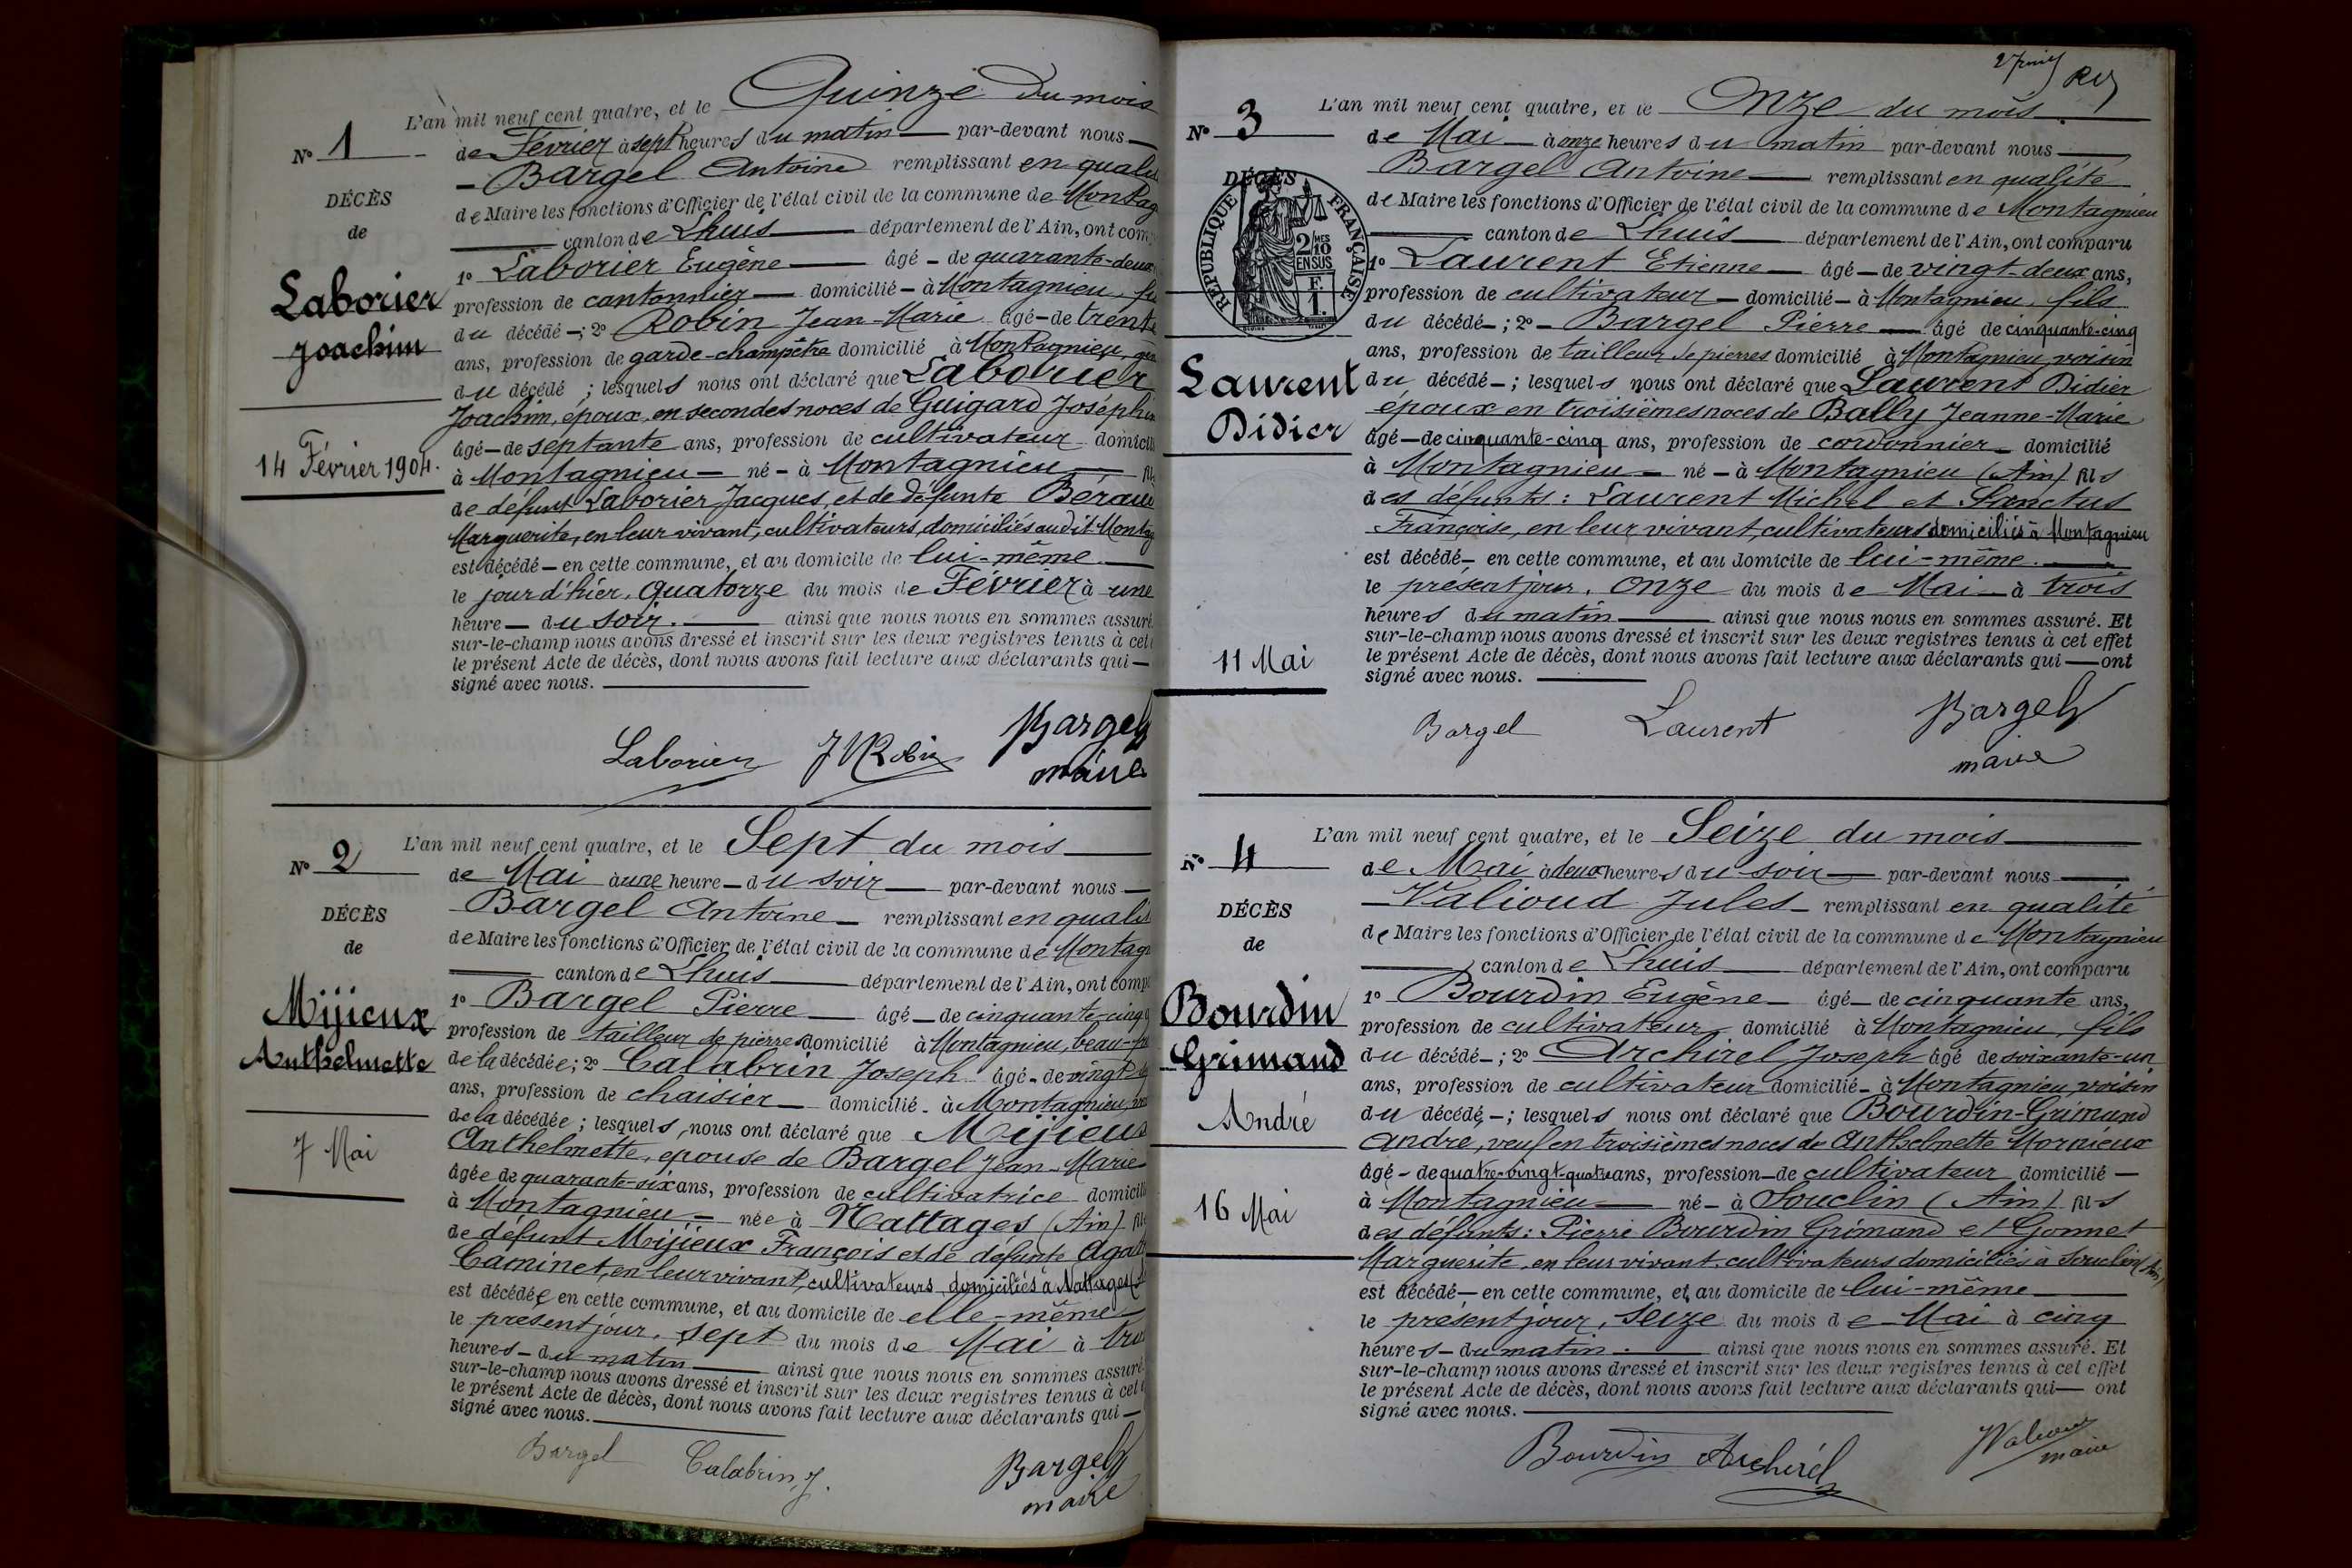 L'an mil neuf cent quatre, et le Quinze du mois
N° 1
de Février à sept heures du matin — par-devant nous —
— Bargel Antoine remplissant en qualité
DÉCÈS
de Maire les fonctions d'Officier de l'état civil de la commune de Montag
de
canton de Lhuis — département de l'Ain, ont com
1° Laborier Eugène — âgé — de quarante-deux
Laborier
profession de cantonnier — domicilié — à Montagnieu, fi
Joachim
du décédé —; 2° Robin Jean-Marie âgé — de trente
ans, profession de garde-champêtre domicilié à Montagnieu,
du décédé ; lesquels nous ont déclaré que Laborier
Joachim, époux en secondes noces de Guigard Joséphin
âgé — de septante ans, profession de cultivateur domicili
14 Février 1904.
à Montagnieu — né — à Montagnieu — fils
de défunt Laborier Jacques, et de défunte Béraud
Marguerite, en leur vivant, cultivateurs, domiciliés audit Montag
est décédé — en cette commune, et au domicile de lui-même —
le jour d'hier, quatorze du mois de Février à une
heure — du soir. — ainsi que nous nous en sommes assuré.
sur-le-champ nous avons dressé et inscrit sur les deux registres tenus à cet
le présent Acte de décès, dont nous avons fait lecture aux déclarants qui —
signé avec nous. —
Laborier JM Robin Bargel
maire
L'an mil neuf cent quatre, et le Sept du mois —
N° 2
de Mai à une heure — du soir — par-devant nous —
Bargel Antoine — remplissant en qualit
DÉCÈS
de Maire les fonctions d'Officier de l'état civil de la commune de Montagn
de
canton de Lhuis — département de l'Ain, ont comp
1° Bargel Pierre — âgé — de cinquante-cinq
Mijieux
profession de tailleur de pierres domicilié à Montagnieu, beau-fr
Anthelmette
de la décédée; 2° Calabrin Joseph âgé — de vingt
ans, profession de chaisier — domicilié - à Montagnieu,
de la décédée ; lesquels nous ont déclaré que Mijieux
7 Mai
Anthelmette, épouse de Bargel Jean-Marie
âgée de quarante-six ans, profession de cultivatrice domicili
à Montagnieu — née à Nattages (Ain) fille
de défunt Mijieux François et de défunte Agat
Caminet, en leur vivant, cultivateurs domiciliés à Nattages
est décédée en cette commune, et au domicile de elle-même —
le présent jour, sept du mois de Mai à trois
heures — du matin — ainsi que nous nous en sommes assuré.
sur-le-champ nous avons dressé et inscrit sur les deux registres tenus à cet
le présent Acte de décès, dont nous avons fait lecture aux déclarants qui —
signé avec nous. —
Bargel Calabrin J. Bargel
maire
L'an mil neuf cent quatre, et le Onze du mois
N° 3
de Mai — à onze heures du matin par-devant nous —
Bargel Antoine — remplissant en qualité
DÉCÈS
RÉPUBLIQUE FRANÇAISE
2/10 MES
EN SUS
F. 1.
de Maire les fonctions d'Officier de l'état civil de la commune de Montagnieu
canton de Lhuis — département de l'Ain, ont comparu
1° Laurent Etienne — âgé — de vingt-deux ans,
profession de cultivateur — domicilié — à Montagnieu, fils
du décédé —; 2° — Bargel Pierre — âgé de cinquante-cinq
ans, profession de tailleur de pierres domicilié à Montagnieu, voisin
Laurent
du décédé —; lesquels nous ont déclaré que Laurent Didier
Didier
époux en troisièmes noces de Bally Jeanne-Marie
âgé — de cinquante-cinq ans, profession de cordonnier — domicilié
à Montagnieu — né — à Montagnieu (Ain) fils
des défunts : Laurent Michel et Sanctus
Françoise, en leur vivant, cultivateurs domiciliés à Montagnieu
est décédé — en cette commune, et au domicile de lui-même. —
le présent jour, onze du mois de Mai — à trois
heures du matin — ainsi que nous nous en sommes assuré. Et
sur-le-champ nous avons dressé et inscrit sur les deux registres tenus à cet effet
11 Mai
le présent Acte de décès, dont nous avons fait lecture aux déclarants qui — ont
signé avec nous. —
Bargel Laurent Bargel
maire
L'an mil neuf cent quatre, et le Seize du mois —
N° 4
de Mai à deux heures du soir — par-devant nous —
— Valioud Jules — remplissant en qualité
DÉCÈS
de Maire les fonctions d'Officier de l'état civil de la commune de Montagnieu
de
canton de Lhuis — département de l'Ain, ont comparu
1° Bourdin Eugène — âgé — de cinquante ans,
Bourdin
profession de cultivateur domicilié à Montagnieu, fils
Grimand
du décédé —; 2° Archirel Joseph âgé de soixante-un
ans, profession de cultivateur domicilié — à Montagnieu, voisin
André
du décédé, —; lesquels nous ont déclaré que Bourdin-Grimand
André, veuf en troisièmes noces de Anthelmette Mornieux
âgé — de quatre-vingt-quatre ans, profession — de cultivateur domicilié —
16 Mai
à Montagnieu — né — à Souclin (Ain) fils
des défunts : Pierre Bourdin Grimand et Gonnet
Marguerite, en leur vivant cultivateurs domiciliés à Souclin (Ain)
est décédé — en cette commune, et au domicile de lui-même —
le présent jour, seize du mois de Mai à cinq
heures — du matin. — ainsi que nous nous en sommes assuré. Et
sur-le-champ nous avons dressé et inscrit sur les deux registres tenus à cet effet
le présent Acte de décès, dont nous avons fait lecture aux déclarants qui — ont
signé avec nous. —
Bourdin Archirél Valioud
maire